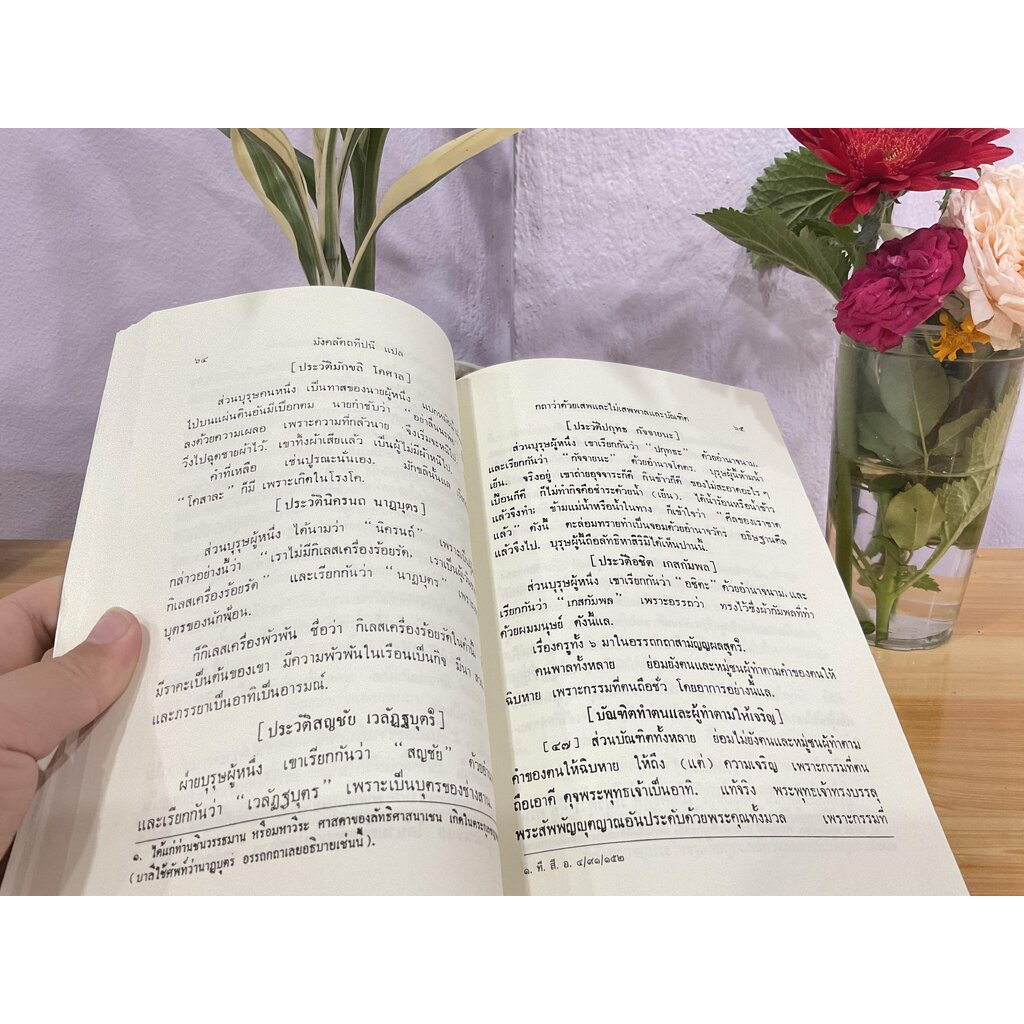 ๖๔
มังคลัตถทีปนี แปล
[ประวัติมักขลิ โคศาล]
ส่วนบุรุษคนหนึ่ง เป็นทาสของนายผู้หนึ่ง แบกหม้อ
ไปบนแผ่นดินอันมีเปือกตม นายกำชับว่า "อย่าลื่นนะ
ลงด้วยความเผลอ เพราะความที่กลัวนาย จึงเริ่มจะหนีไป
วิ่งไปฉุดชายผ้าไว้. เขาทิ้งผ้าเสียแล้ว เป็นผู้ไม่มีผ้าหนีไป.
คำที่เหลือ เช่นปูรณะนั่นเอง. มักขลินั้นแล
"โคสาละ" ก็มี เพราะเกิดในโรงโค.
[ประวัตินิครนถ นาฏบุตร]
ส่วนบุรุษผู้หนึ่ง ได้นามว่า "นิครนถ์" เพราะเป็น
กล่าวอย่างนี้ว่า "เราไม่มีกิเลสเครื่องร้อยรัด, เราเป็นผู้
กิเลสเครื่องร้อยรัด" และเรียกกันว่า "นาฏบุตร"
บุตรของนักฟ้อน.
ก็กิเลสเครื่องพัวพัน ชื่อว่า กิเลสเครื่องร้อยรัดในคำนี้.
มีราคะเป็นต้นของเขา มีความพัวพันในเรือนเป็นกิจ มีนา สวน
และภรรยาเป็นอาทิเป็นอารมณ์.
[ประวัติสญชัย เวลัฏฐบุตร๑]
ฝ่ายบุรุษผู้หนึ่ง เขาเรียกกันว่า "สญชัย" ด้วย
และเรียกกันว่า "เวลัฏฐบุตร" เพราะเป็นบุตรของช่างสาน.
๑. ได้แก่ท่านชินวรรธมาน หรือมหาวีระ ศาสดาของลัทธิศาสนาเชน เกิดในตระกูล
(บาลีใช้ศัพท์ว่านาฏบุตร อรรถกถาเลยอธิบายเช่นนี้).
กถาว่าด้วยเสพและไม่เสพพาลและบัณฑิต
๖๕
[ประวัติปกุทธ กัจจายนะ]
ส่วนบุรุษผู้หนึ่ง เขาเรียกกันว่า "ปกุทธะ" ด้วยอำนาจนาม,
และเรียกกันว่า "กัจจายนะ" ด้วยอำนาจโคตร. บุรุษผู้ห้ามน้ำ
เย็น. จริงอยู่ เขาถ่ายอุจจาระก็ดี กินข้าวก็ดี ของไม่สะอาดอะไร ๆ
เปื้อนก็ดี ก็ไม่ทำกิจคือชำระด้วยน้ำ (เย็น). ได้น้ำร้อนหรือน้ำข้าว
แล้วจึงทำ; ข้ามแม่น้ำหรือน้ำในทาง ก็เข้าใจว่า "ศีลของเราขาด
แล้ว" ดังนี้ ตะล่อมทรายทำเป็นจอมด้วยอำนาจวัตร อธิษฐานศีล
แล้วจึงไป. บุรุษผู้นี้ถือลัทธิหาสิริมิได้เห็นปานนี้.
[ประวัติอชิต เกสกัมพล]
ส่วนบุรุษผู้หนึ่ง เขาเรียกกันว่า "อชิตะ" ด้วยอำนาจนาม, และ
เรียกกันว่า "เกสกัมพล" เพราะอรรถว่า ทรงไว้ซึ่งผ้ากัมพลที่ทำ
ด้วยผมมนุษย์ ดังนี้แล.
เรื่องครูทั้ง ๖ มาในอรรถกถาสามัญญผลสูตร๑.
คนพาลทั้งหลาย ย่อมยังตนและหมู่ชนผู้ทำตามคำของตนให้
ฉิบหาย เพราะกรรมที่ตนถือชั่ว โดยอาการอย่างนี้แล.
[บัณฑิตทำตนและผู้ทำตามให้เจริญ]
[๔๗] ส่วนบัณฑิตทั้งหลาย ย่อมไม่ยังตนและหมู่ชนผู้ทำตาม
คำของตนให้ฉิบหาย ให้ถึง (แต่) ความเจริญ เพราะกรรมที่ตน
ถือเอาดี ดุจพระพุทธเจ้าเป็นอาทิ. แท้จริง พระพุทธเจ้าทรงบรรลุ
พระสัพพัญญุตญาณอันประดับด้วยพระคุณทั้งมวล เพราะกรรมที่
๑. ที. สี. อ. ๔/๙๑/๑๕๒